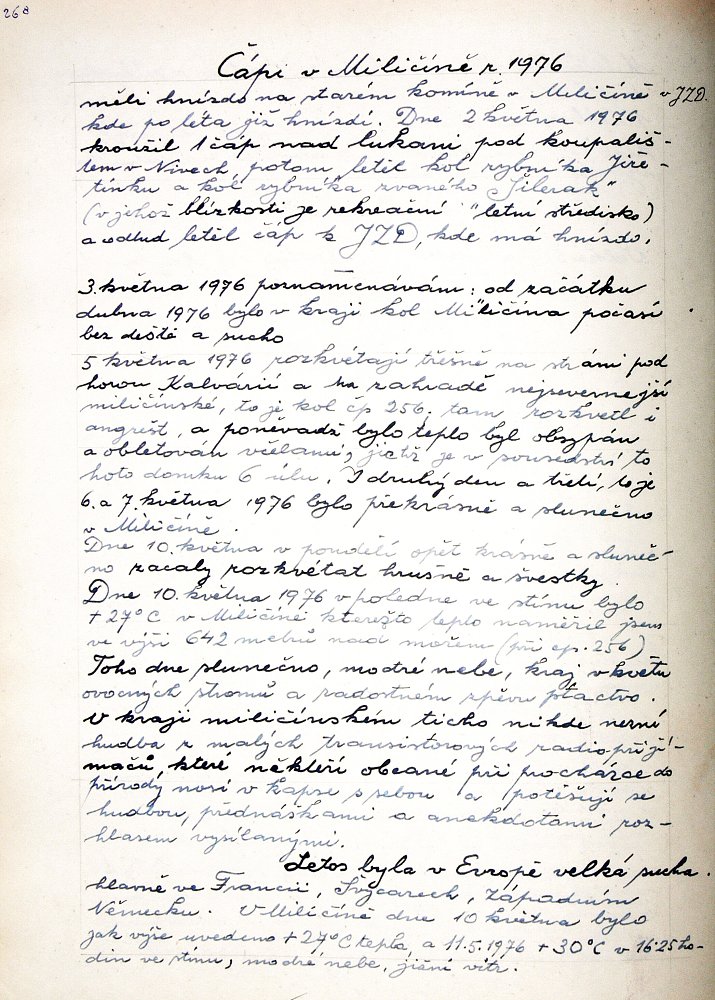 268
Čápi v Miličíně r. 1976
měli hnízdo na starém komíně v Miličíně v JZD.
kde po léta již hnízdí. Dne 2 května 1976
kroužil 1 čáp nad lukami pod koupališ-
tem v Nivech, potom letěl kol rybníka Jiře-
tínku a kol rybníka zvaného „Šilerák"
(v jehož blízkosti je rekreační "letní středisko)
a odtud letěl čáp k JZD, kde má hnízdo.
3. května 1976 poznamenávám: od začátku
dubna 1976 bylo v kraji kol Miličína počasí
bez deště a sucho
5 května 1976 rozkvétají třešně na stráni pod
horou Kalvárií a na zahradě nejsevernejší
miličínské, to je kol čp 256. tam rozkvetl i
angrešt, a poněvadž bylo teplo byl obsypán
a obletován včelami, jichž je v sousedství to
hoto domku 6 úlu. I druhý den a třetí, to je
6. a 7. května 1976 bylo překrásně a slunečno
v Miličíně.
Dne 10. května v pondělí opět krásně a sluneč-
no začaly rozkvétat hrušně a švestky.
Dne 10. května 1976 v poledne ve stínu bylo
+27°C v Miličíně kterežto teplo naměřil jsem
ve výši 642 metrů nad mořem (při čp. 256)
Toho dne slunečno, modré nebe, kraj v květu
ovocných stromů a radostném zpěvu ptactvo.
V kraji miličínském ticho nikde nezní
hudba z malých transistorových radiopřijí-
mačů, které někteří občané při procházce do
přírody nosí v kapse s sebou a potěšují se
hudbou, přednáškami a anekdotami roz-
hlasem vysílanými.
Letos byla v Evropě velká sucha.
hlavně ve Francii, Švýcarech, Západním
Německu. V Miličíně dne 10 května bylo
jak výše uvedeno +27°C tepla, a 11.5.1976 +30°C v 16·25 ho-
din ve stínu, modré nebe, jižní vítr.